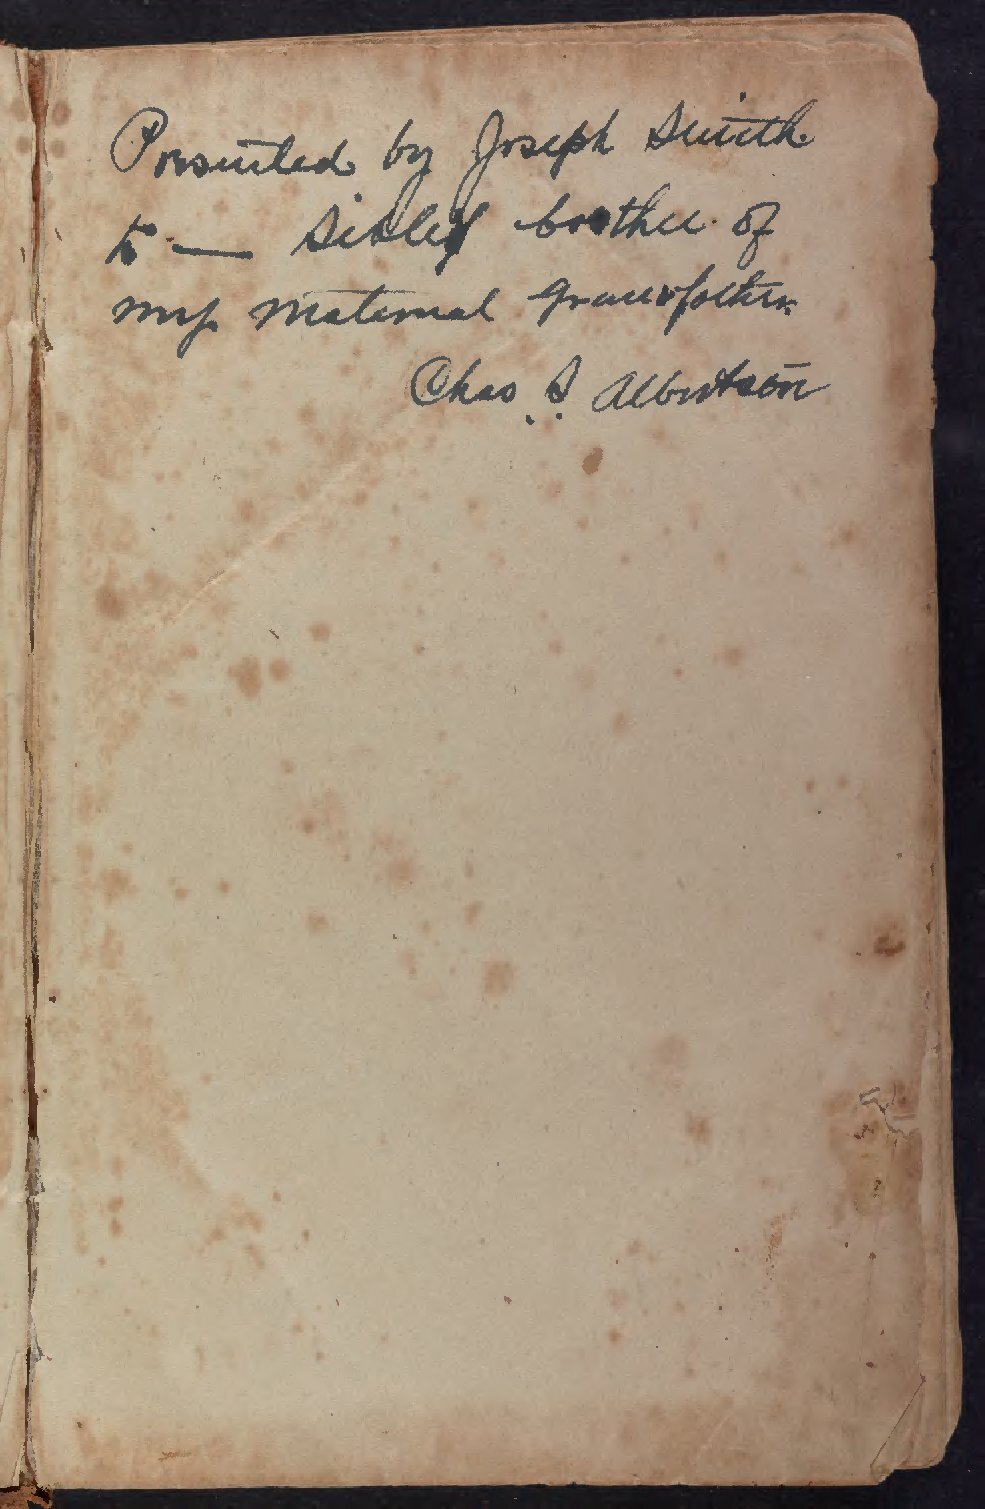 Presented by Joseph Smith
to — Sibley brother of
my maternal grandfather.
Chas. S. Albertson